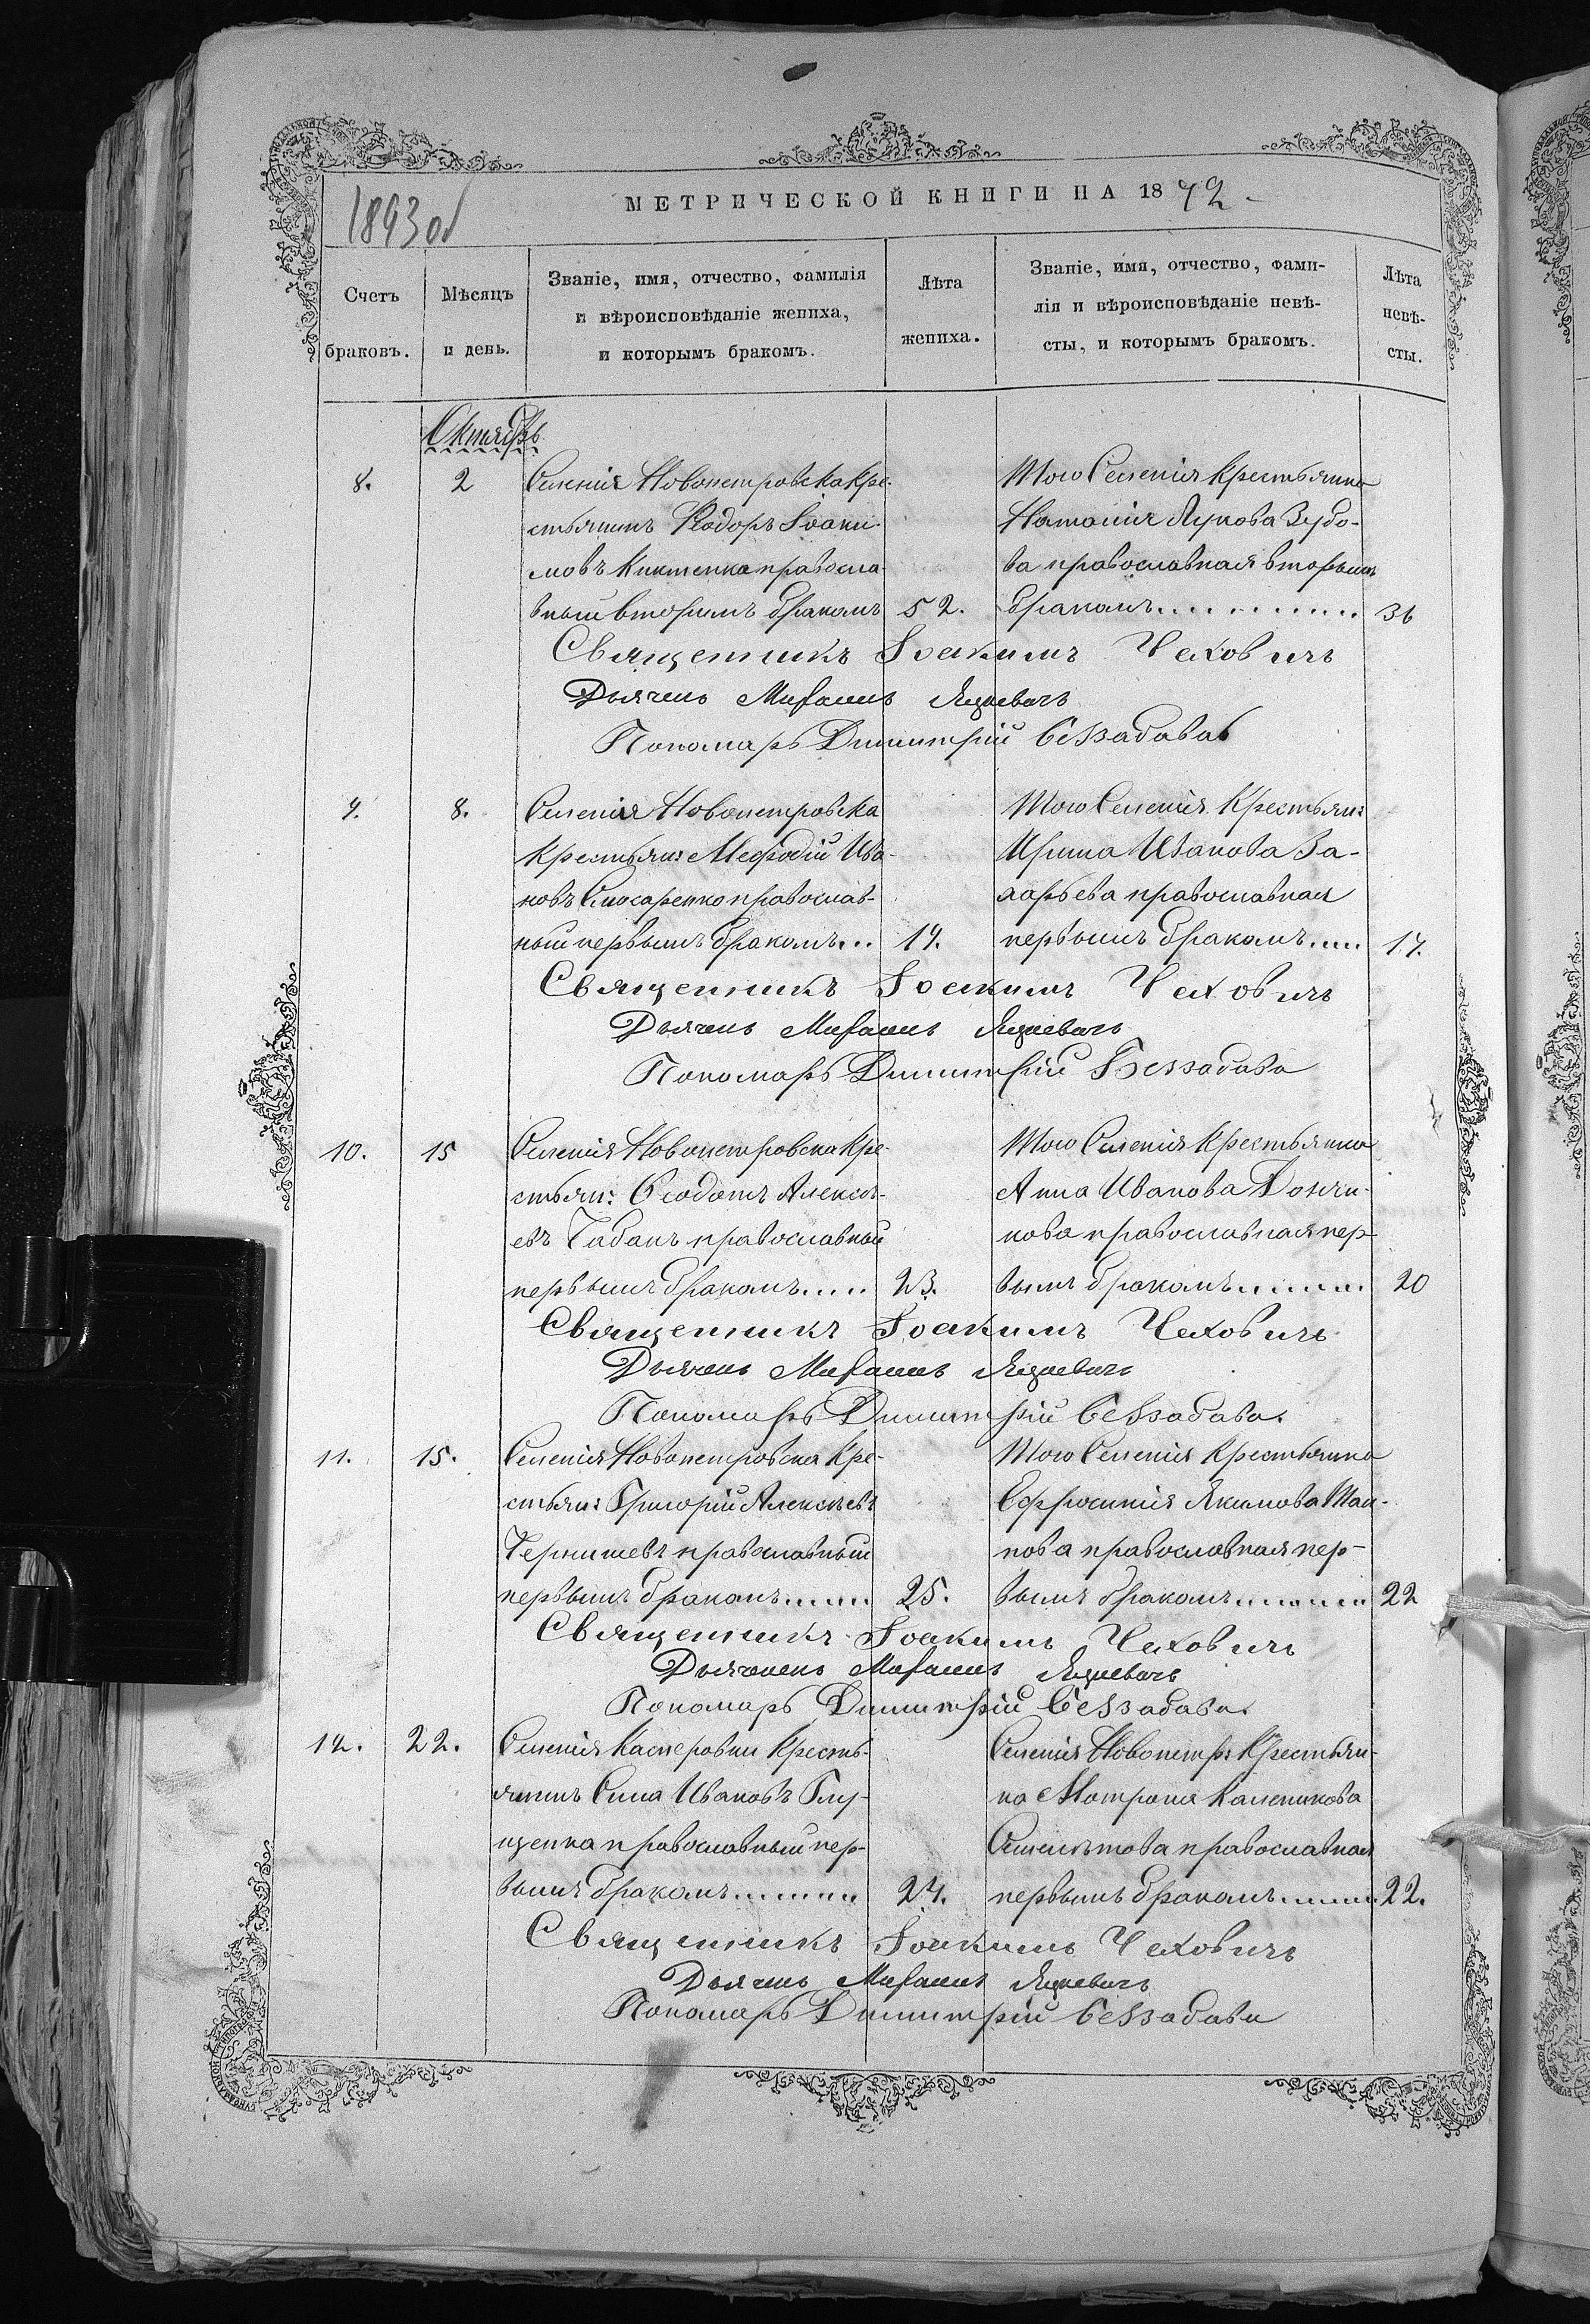 1893 об
МЕТРИЧЕСКОЙ КНИГИ НА 1872
Счетъ браковъ.
Мѣсяцъ и день.
Званіе, имя, отчество, фамилія и вѣроисповѣданіе жениха, и которымъ бракомъ.
Лѣта жениха.
Званіе, имя, отчество, фами-
лія и вѣроисповѣданіе невѣ-
сты, и которымъ бракомъ.
Лѣта невѣ-
сты.
Октябрь
8. 2 Селенія Новопетровска Кре-
стьянинъ Ѳеодоръ Іоаки-
мовъ Киктенка правосла-
вный вторымъ бракомъ 52.
Того Селенія Крестьянка
Наталія Лукова Зубо-
ва православная вторымъ
бракомъ 36
Священникъ Іоакимъ Чеховичъ
Дьячекъ Михаилъ Яцкевичъ
Пономарь Димитрій Беззабава
9. 8. Селенія Новопетровска
Крестьян: Меѳодій Ива-
новъ Слюсаренко православ-
ный первымъ бракомъ... 19.
Того Селенія Крестьян:
Ирина Иванова За-
харьева православная
первымъ бракомъ 17.
Священникъ Іоакимъ Чеховичъ
Дьячекъ Михаилъ Яцкевичъ
Пономарь Димитрій Беззабава
10. 15 Селенія Новопетровска Кре-
стьян: Ѳеодотъ Алексѣ-
евъ Чабанъ православный
первымъ бракомъ 23.
Того Селенія Крестьянка
Анна Иванова
кова православная пер-
вымъ бракомъ 20
Священникъ Іоакимъ Чеховичъ
Дьячекъ Михаилъ Яцкевичъ
Пономарь Димитрій Беззабава.
11. 15. Селенія Новопетровска Кре-
стьян: Григорій Алексѣевъ
Чернишевъ православный
первымъ бракомъ 25.
Того Селенія Крестьянка
Ефросинія Якимова
нова православная пер-
вымъ бракомъ 22
Священникъ Іоакимъ Чеховичъ
Дьячекъ Михаилъ Яцкевичъ
Пономарь Димитрій Беззабава.
12. 22. Селенія Касперовки Кресть-
янинъ Сила Ивановъ Глу-
щенка православный пер-
вымъ бракомъ 24.
Селенія Новопетр: Крестьян-
ка Мотрона Каленикова
православная
первымъ бракомъ 22.
Священникъ Іоакимъ Чеховичъ
Дьячекъ Михаилъ Яцкевичъ
Пономарь Димитрій Беззабава